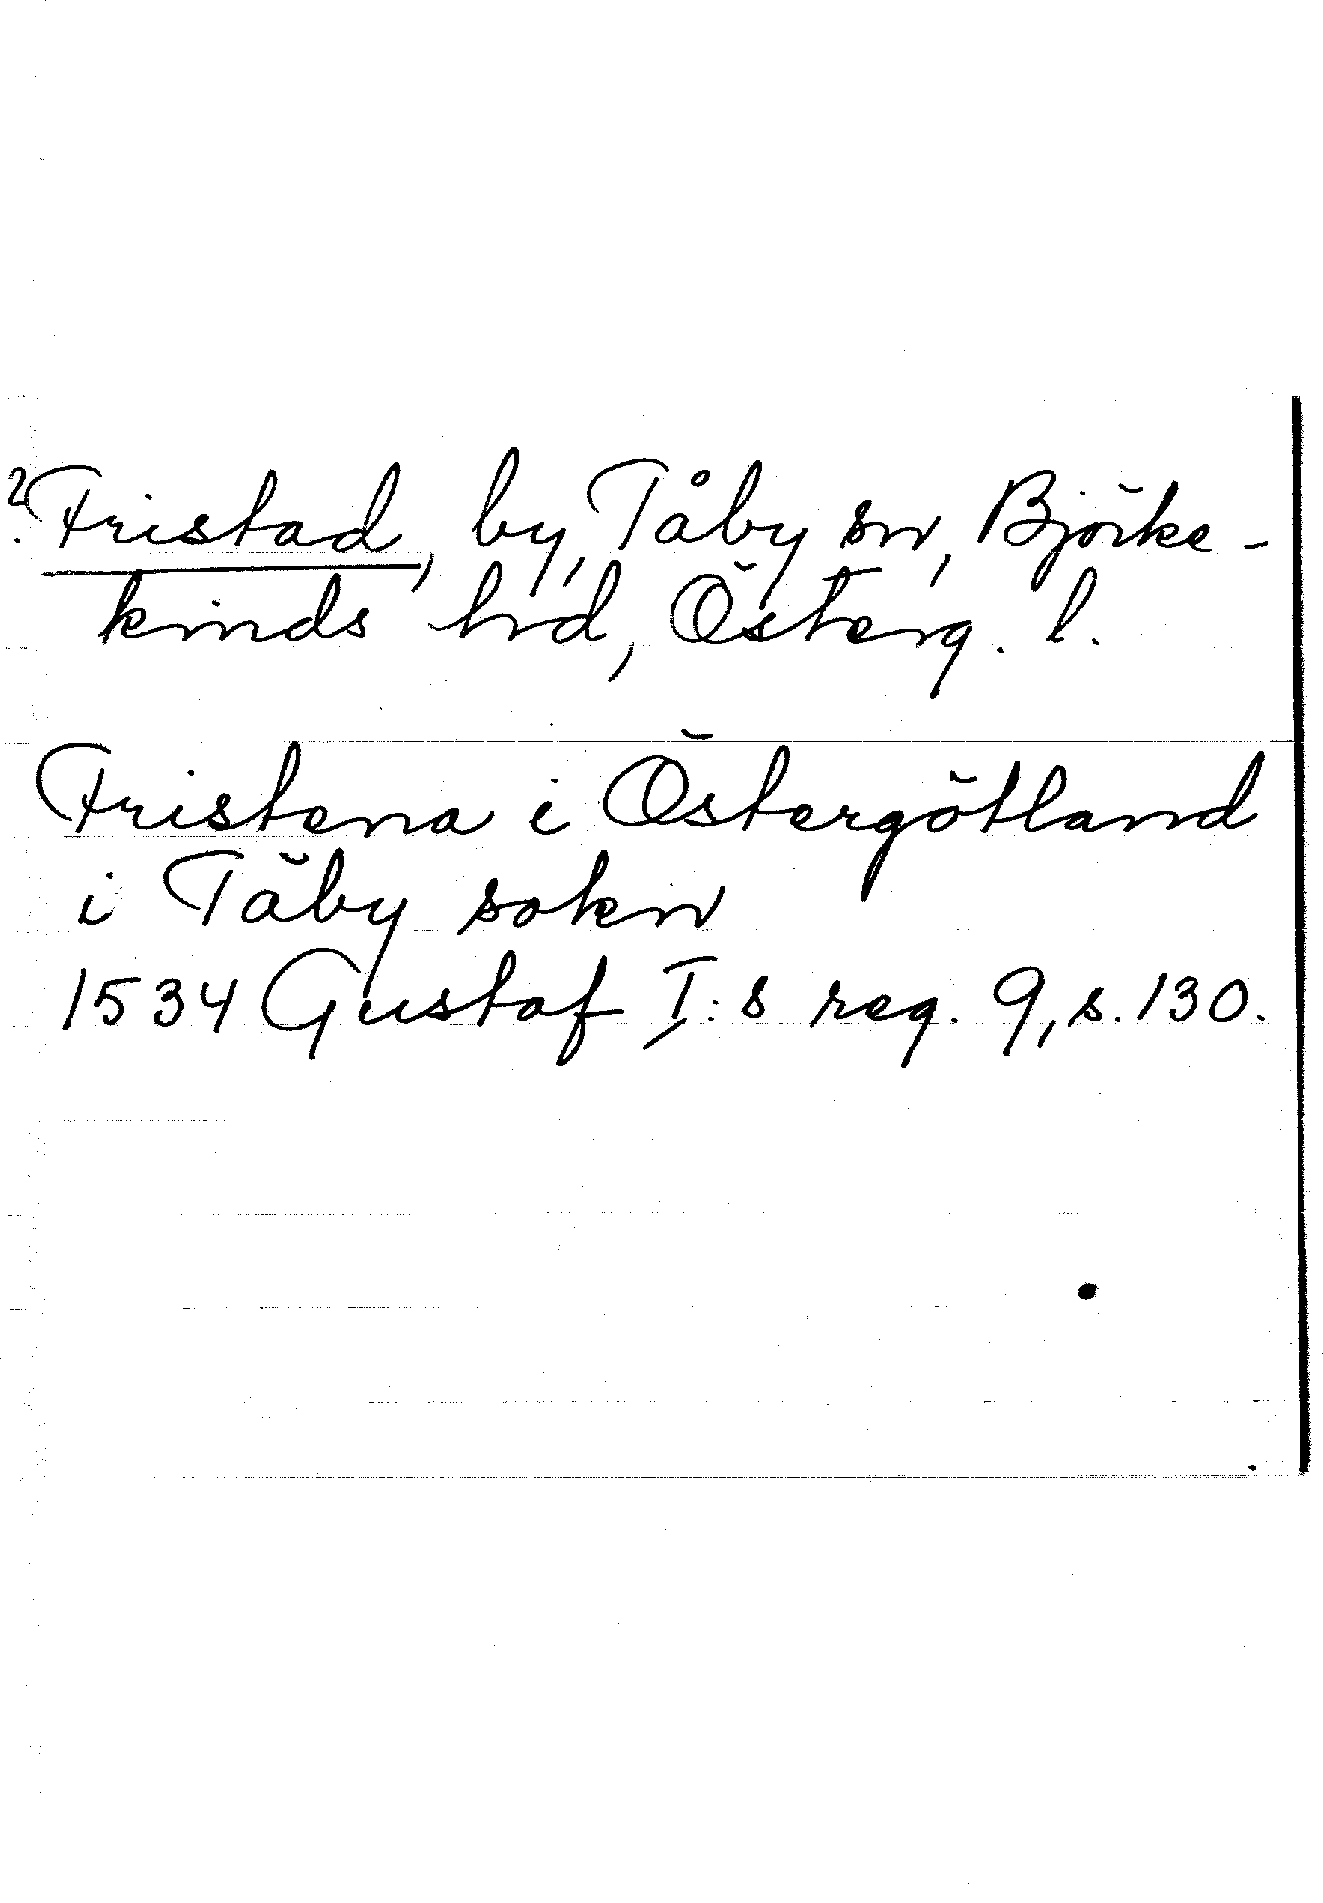 ? Fristad, by, Tåby sn, Björke-
kinds hrd, Österg. l.
Fristena i Östergötland
i Täby sokn
1534 Gustaf I:s reg. 9, s. 130.